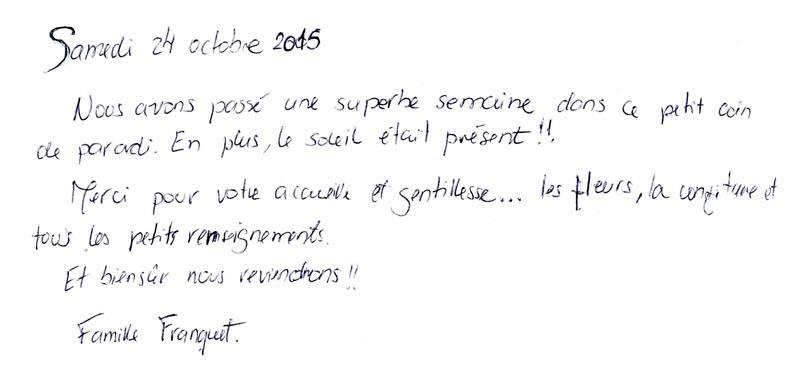 Samedi 24 octobre 2015
Nous avons passé une superbe semaine dans ce petit coin
de paradi. En plus, le soleil était présent !!.
Merci pour votre accueille et gentillesse... les fleurs, la confiture et
tous les petits renseignements.
Et biensûr nous reviendrons !!
Famille Franquet.